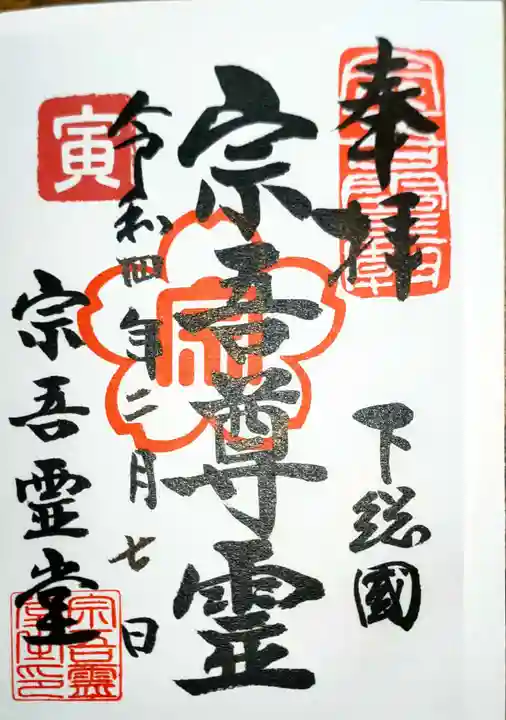 奉拝
下総國
宗吾尊霊
宗
令和四年二月七日
寅
宗吾霊堂
宗吾霊